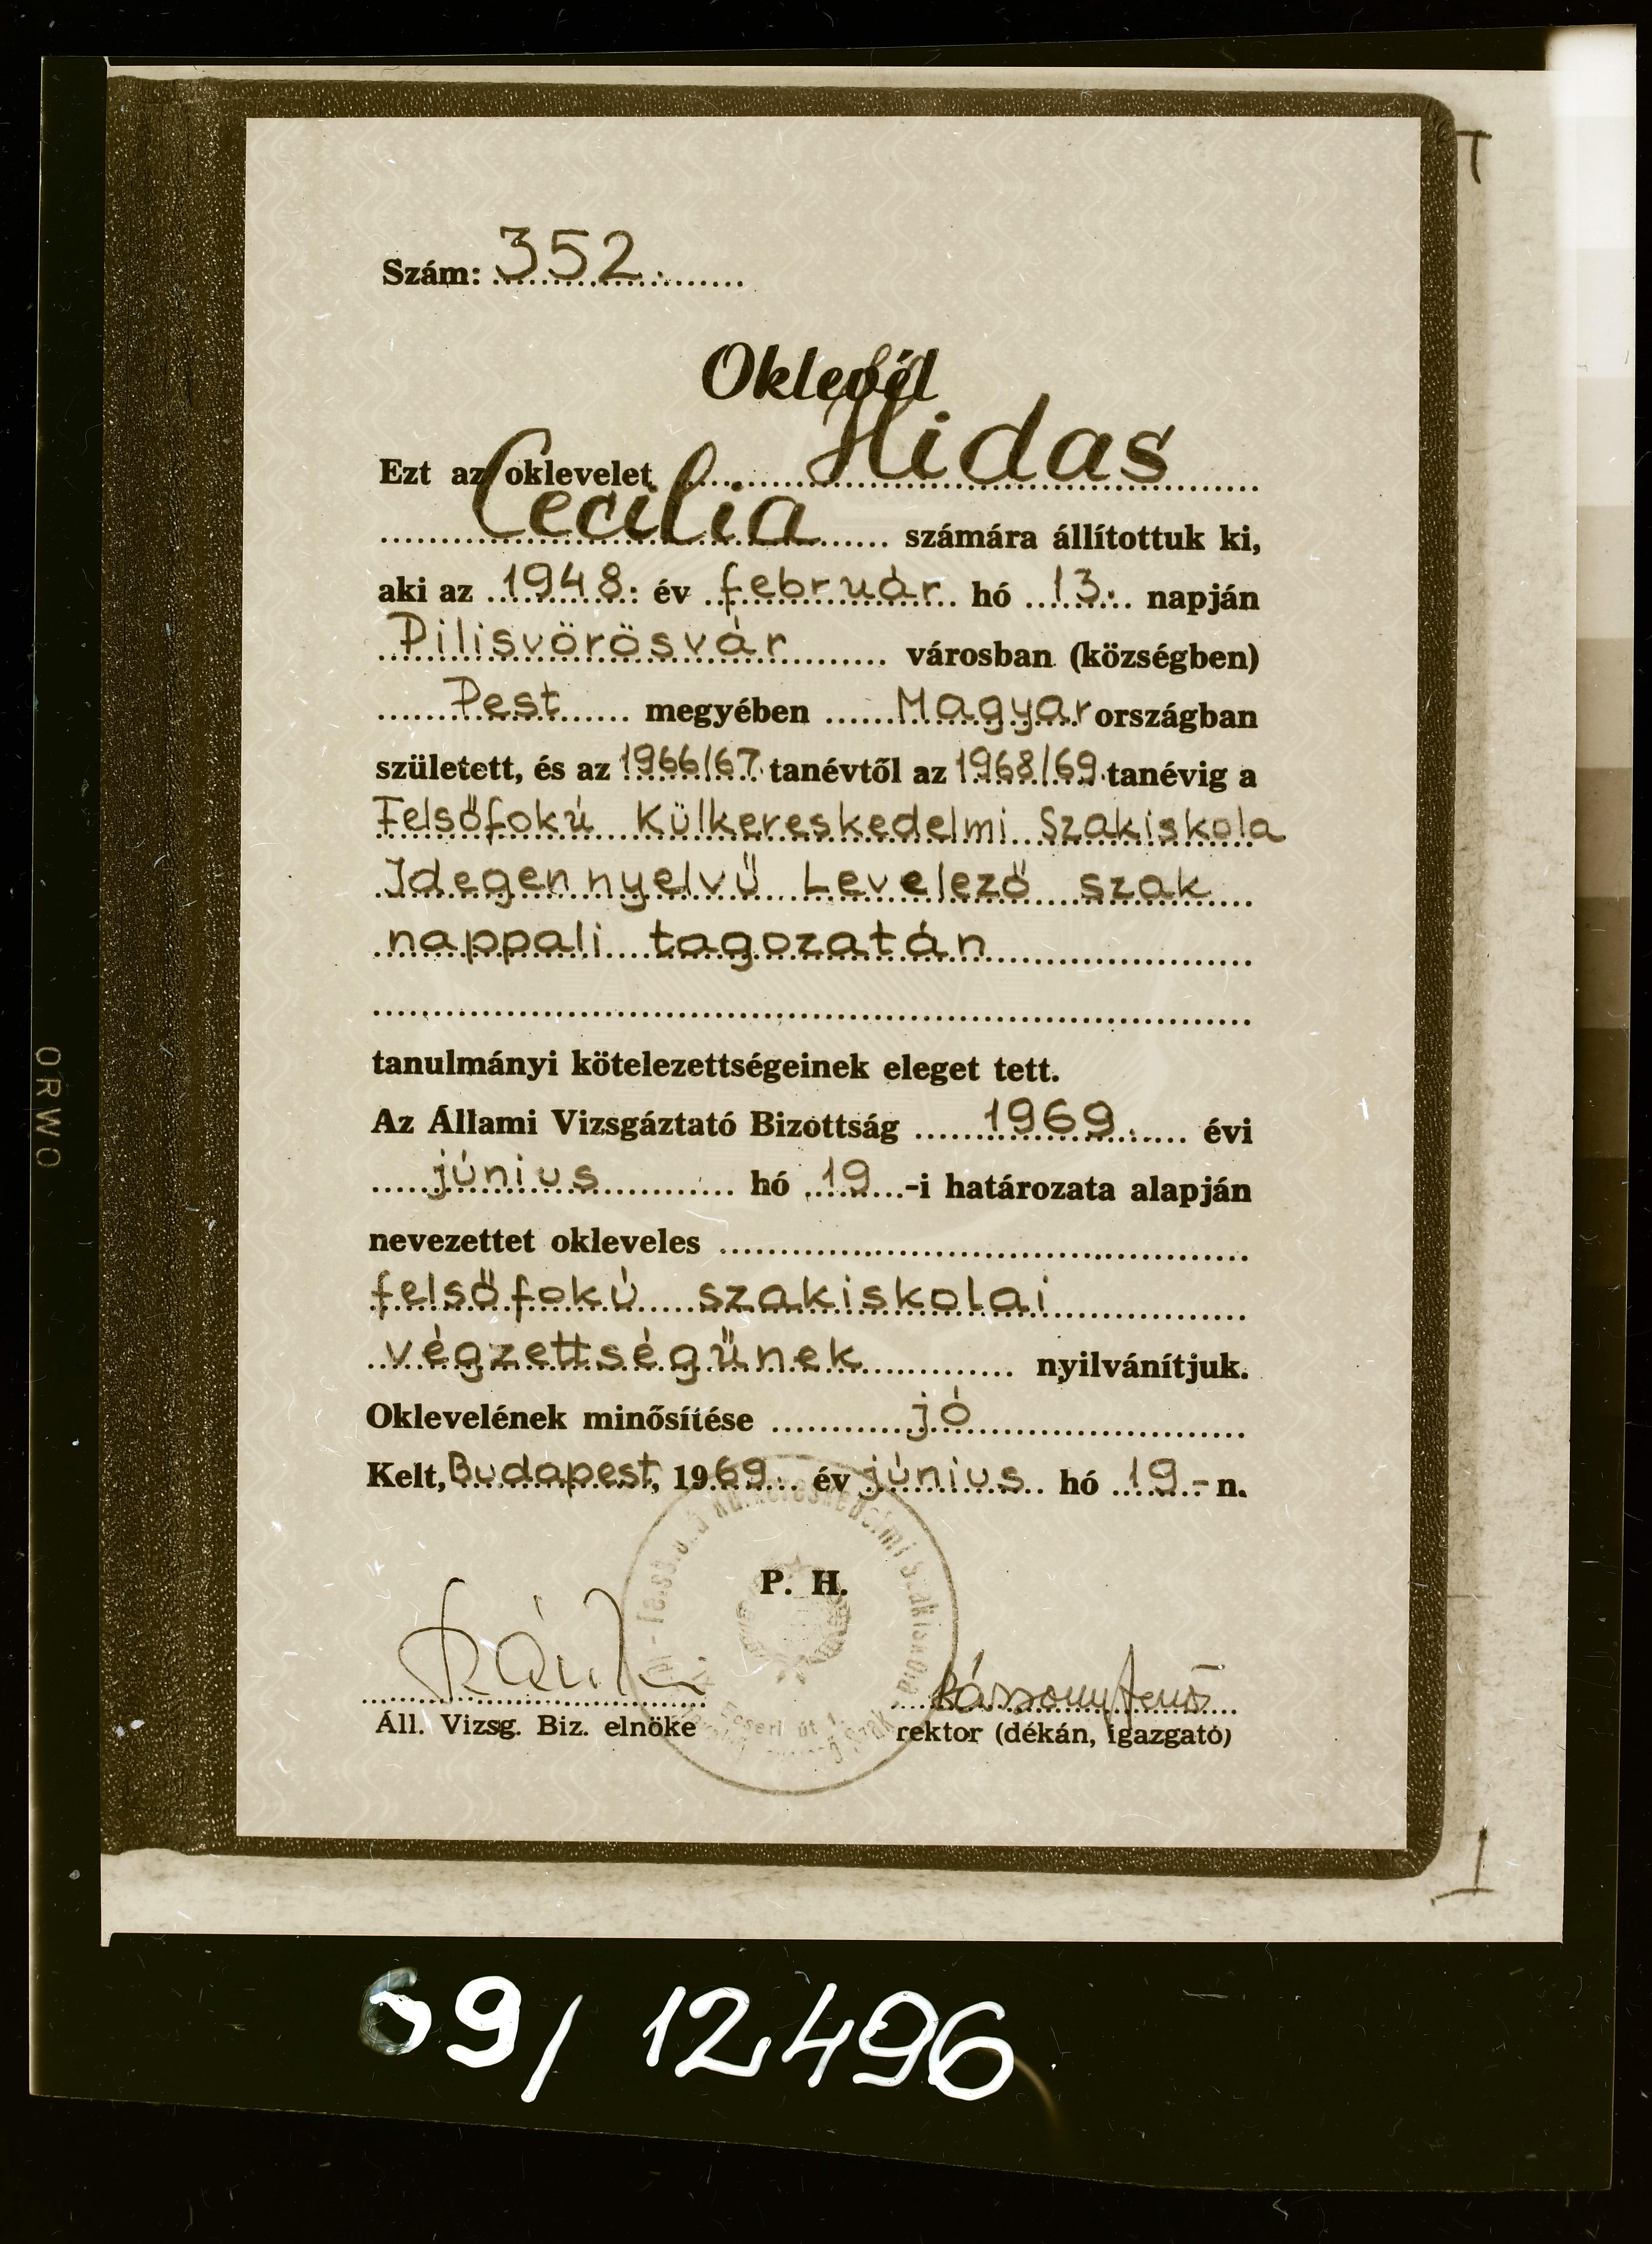 Szám: 352.
Oklevél
Ezt az oklevelet Hidas
Cecilia számára állítottuk ki,
aki az 1948. év február hó 13. napján
Pilisvörösvár városban (községben)
Pest megyében Magyarországban
született, és az 1966/67. tanévtől az 1968/69. tanévig a
Felsőfokú Külkereskedelmi Szakiskola
Idegennyelvű Levelező szak
nappali tagozatán
tanulmányi kötelezettségeinek eleget tett.
Az Állami Vizsgáztató Bizottság 1969. évi
június hó 19-i határozata alapján
nevezettet okleveles
felsőfokú szakiskolai
végzettségűnek nyilvánítjuk.
Oklevelének minősítése jó
Kelt, Budapest, 1969. év június hó 19.-n.
P. H.
Áll. Vizsg. Biz. elnöke
rektor (dékán, igazgató)
Külkereskedelmi Szakiskola
ORWO
69/12496